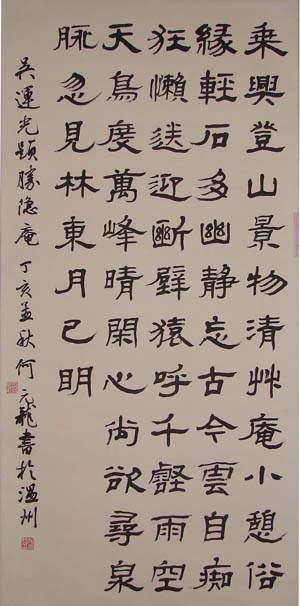 乘興登山景物清艸庵小憩俗
緣輕石多幽靜忘古今雲自痴
狂懶送迎斷壁猿呼千壑雨空
天鳥度萬峰晴閑心尚欲尋泉
脈忽見林東月已明
吳運光題勝隐庵 丁亥孟秋何元龍書於温州